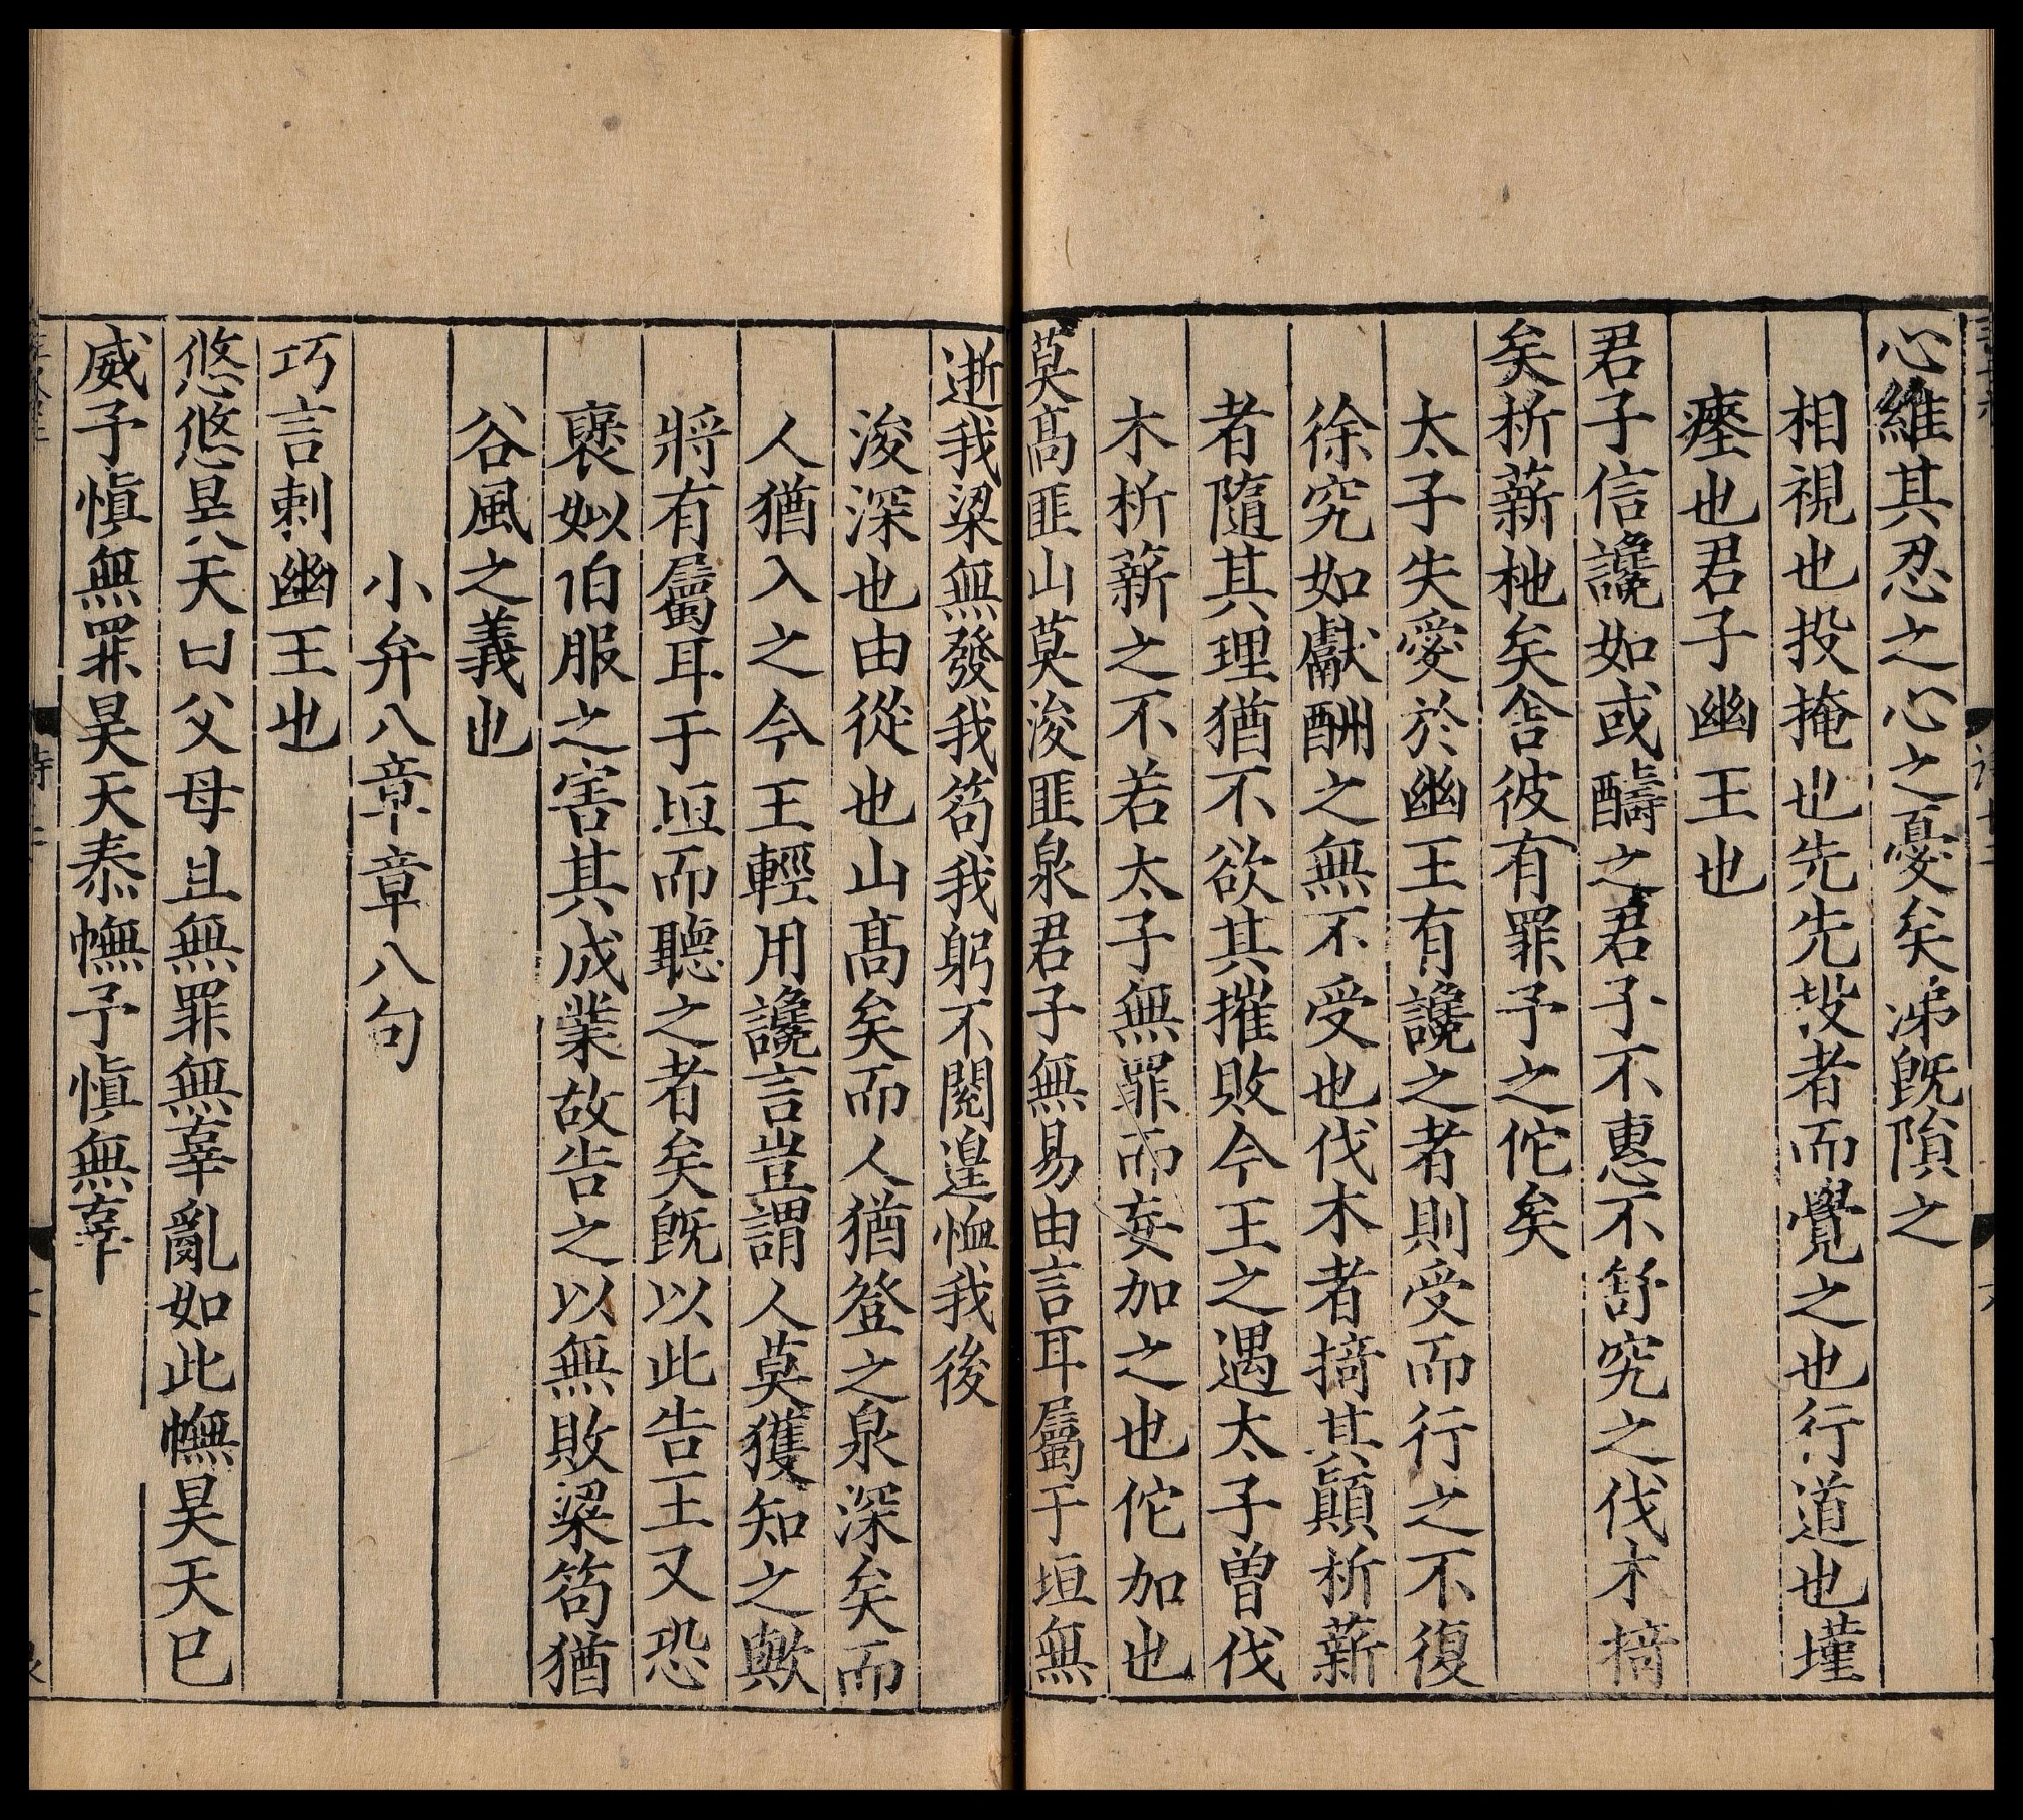 心維其忍之心之憂矣涕旣隕之
相視也投掩也先先投者而覺之也行道也墐
瘗也君子幽王也
君子信讒如或醻之君子不惠不舒究之伐木掎
矣析薪杝矣舍彼有罪予之佗矣
太子失愛於幽王有讒之者則受而行之不復
徐究如獻酬之無不受也伐木者掎其顚析薪
者隨其理猶不欲其摧敗今王之遇太子曾伐
木析薪之不若太子無罪而妄加之也佗加也
莫髙匪山莫浚匪泉君子無易由言耳屬于垣無
逝我梁無發我笱我躬不閱遑恤我後
浚深也由從也山髙矣而人猶登之泉深矣而
人猶入之今王輕用讒言豈謂人莫獲知之歟
將有屬耳于垣而聽之者矣旣以此告王又恐
褒姒伯服之害其成業故告之以無敗梁笱猶
谷風之義也
小弁八章章八句
巧言刺幽王也
悠悠昊天曰父母且無罪無辜亂如此幠昊天已
威予愼無罪昊天泰幠予愼無辜